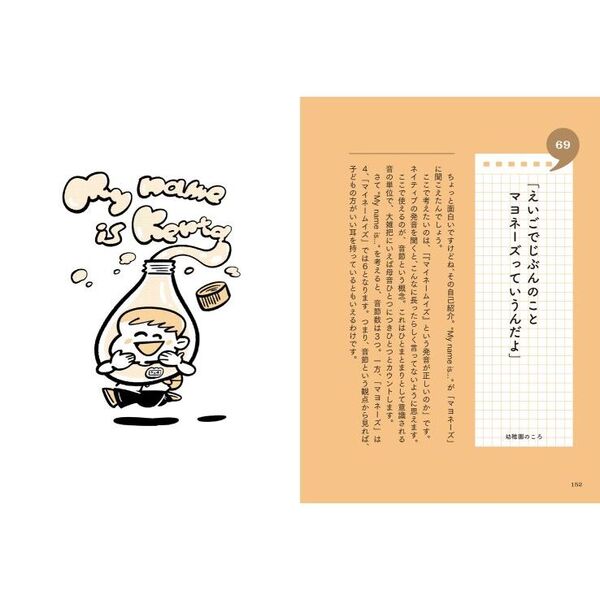 My name
is Kenta
69
「えいごでじぶんのこと
マヨネーズっていうんだよ」
幼稚園のころ
ちょっと面白いですけどね、その自己紹介。"My name is…"が「マヨネーズ」
に聞こえたんでしょう。
ここで考えたいのは、「『マイネームイズ』という発音が正しいのか」です。
ネイティブの発音を聞くと、こんなに長ったらしく言ってないように思えます。
ここで使えるのが、音節という概念。これはひとまとまりとして意識される
音の単位で、大雑把にいえば母音ひとつにつきひとつとカウントします。
さて"My name is…"を考えると、音節数は3つ。一方、「マヨネーズ」は
4、「マイネームイズ」では6となります。つまり、音節という観点から見れば、
子どもの方がいい耳を持っているともいえるわけです。
152